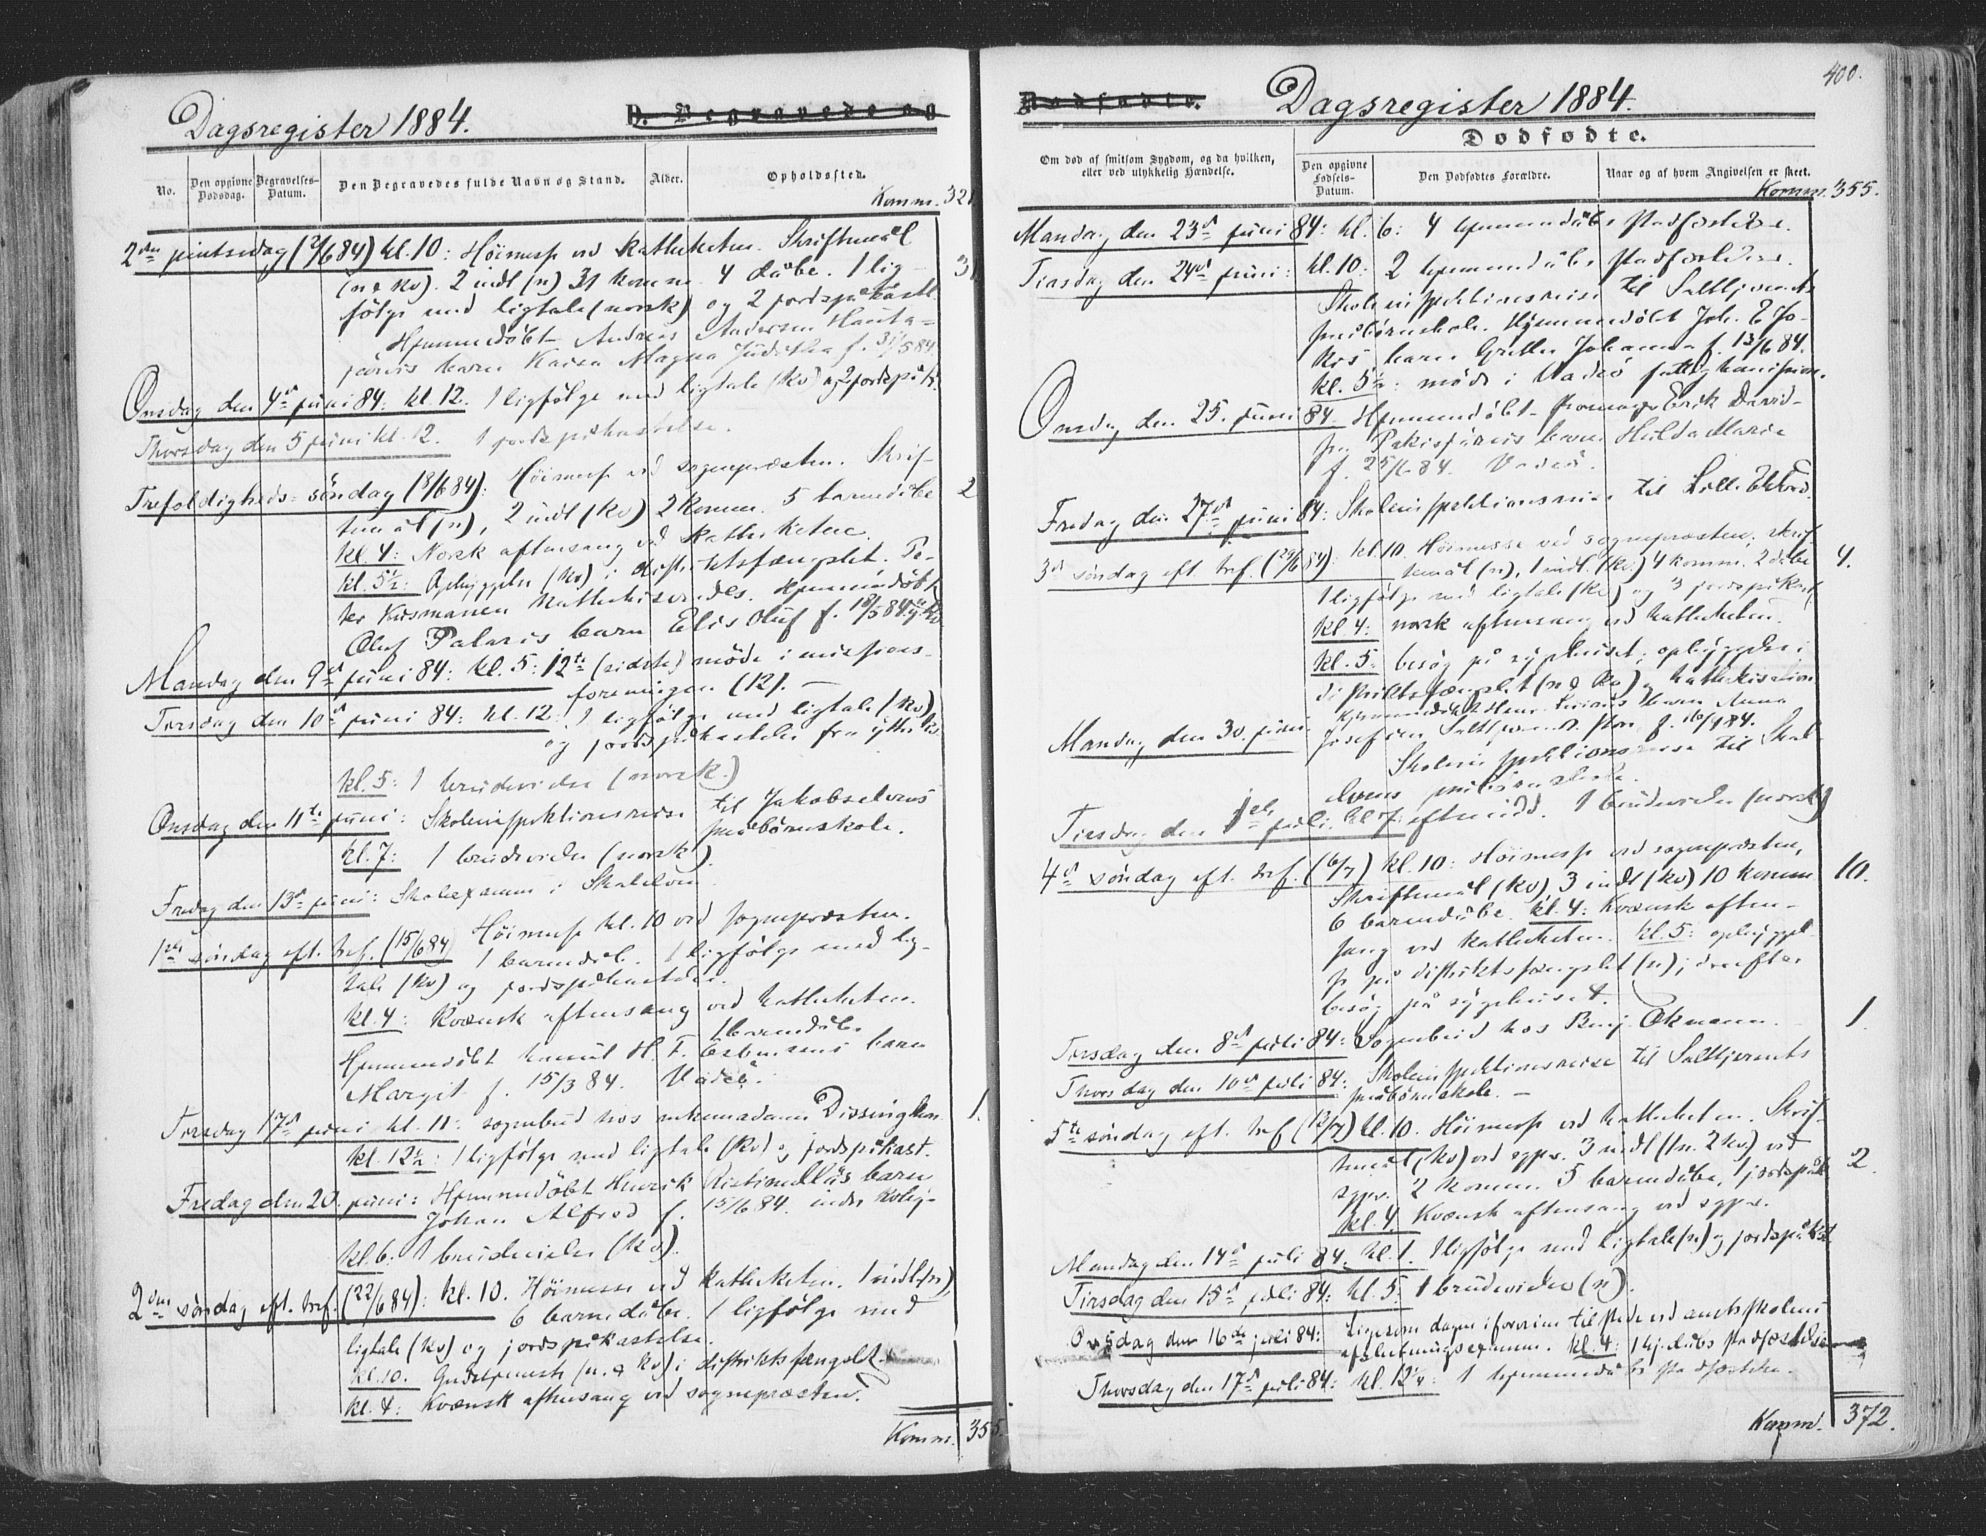 Dagsregister 1884.
D. Begravede og
No.
Den opgivne Dødsdag.
Begravelses-Datum.
Den Begravedes fulde Navn og Stand.
Alder.
Opholdssted.
Komm. 321
2den pintsedag (2/6 84) kl. 10: Høimesse ved katheketen. Skriftemål
(n & kv). 2 indl (n) 31 komm. 4 dåbe. 1 lig- 31
følge med ligtale (norsk) og 2 jordspåkastl.
Hjemmedøbt Andreas Andersen Hauta-
järvis barn Kaisa Magna Juditha f. 31/5 84.
Onsdag den 4de juni 84: kl. 12. 1 ligfølge med ligtale (kv) og 2 jordspåk.
Thorsdag den 5 juni kl. 12. 1 jordspåkastelse.
Trefoldigheds-søndag (8/6 84): Høimesse ved sognepræsten. Skrif-
temål (n), 2 indl (kv) 2 komm. 5 barnedåbe 2
kl. 4: Norsk aftensang ved katheketen.
kl. 5½: Opbyggelse (kv) i distriktsfængslet. Pe-
ter Kursmanen katheketiserendes. Hjemmedøbt
Oluf Palaris barn Elis Oluf f. 18/5 84
Mandag den 9de juni 84: kl. 5: 12te (sidste) møde i missions-
foreningen (12). —
Tirsdag den 10de juni 84: kl. 12: 1 ligfølge med ligtale (kv)
og jordspåkastelse fra ytre
kl. 5: 1 brudevielse (norsk.)
Onsdag den 11te juni: Skoleinspektionsreise til Jakobselvens
småbørnskole.
kl. 7: 1 brudevielse (norsk).
Fredag den 13de juni: Skoleexamen i Skallelven
1ste søndag eft. tref. (15/6 84) Høimesse kl. 10 ved sognepræsten.
1 barnedåb. 1 ligfølge med lig-
tale (kv) og jordspåkastelse.
kl. 4: Kvænsk aftensang ved katheketen.
1 barnedåb.
Hjemmedøbt H. F. Esbensens barn
Margit f. 15/3 84. Vadsø.
Tirsdag 17de juni kl. 11: sognebud hos enkemadame Dissington 1.
kl. 12½: 1 ligfølge med ligtale (kv) og jordspåkast.
Fredag den 20. juni: Hjemmedøbt Henrik Ristimellas barn
Johan Alfred f. 15/6 84. indre kvby-
kl. 6. 1 brudevielse (kv).
2den søndag eft. tref. (22/6 84): kl. 10. Høimesse ved katheketen. 1 indl (n),
6 barnedåbe. 1 ligfølge med
ligtale (kv) og jordspåkastelse.
kl. 10. Gudstjeneste (n. & kv) i distriktsfængslet.
kl. 4: Kvænsk aftensang ved sognepræsten.
Komm. 355.
400.
Dødfødte.
Dagsregister 1884.
Dødfødte.
Om død af smitsom Sygdom, og da hvilken, eller ved ulykkelig Hændelse.
Den opgivne Fødsels-Datum.
Den Dødfødtes Forældre.
Naar og af hvem Angivelsen er skeet.
Komm. 355.
Mandag den 23de juni 84: kl. 6: 4 hjemmedåbs stadfæstelse.
Tirsdag den 24de juni: kl. 10: 2 hjemmedåbs stadfæstelse.
Skoleinspektionsreise til Saltkjernets
småbørnskole. Hjemmedøbt Joh. E Jo-
kis barn Grethe Johanna f. 13/6 84.
kl. 5½: møde i Vadsø fattigkommission.
Onsdag den 25. juni 84. Hjemmedøbt Erik David-
sen Pakisjärvis barn Hulda Marie
f. 25/6 84. Vadsø.
Fredag den 27de juni 84: Skoleinspektionsreise til Lille Ekkerø.
3de søndag eft. tref. (29/6 84): kl. 10. Høimesse ved sognepræsten, skrif-
temål (n), 1 indl. (kv) 4 komm. 2 dåbe 4.
1 ligfølge med ligtale (kv) og 3 jordspåkast
kl. 4: norsk aftensang ved katheketen.
kl. 5: besøg på sygehuset; opbyggelse i
distriktsfængslet (n & kv) og kathekisation
Mandag den 30. juni. Hjemmedøbt Henr. barn Anna
Josefine, Saltkjernet, f. 16/4 84.
Skoleinspektionsreise til Skal-
elvens småbørnskole.
Tirsdag den 1ste juli. kl. 7 eftmidd. 1 brudevielse (norsk)
4de søndag eft. tref. (6/7) kl. 10: Høimesse ved sognepræsten,
Skriftemål (kv) 3 indl (kv) 10 komm 10.
6 barnedåbe. kl. 4: Kvænsk aften-
sang ved katheketen. kl. 5: opbyggel-
se på distriktsfængslet (n); derefter
besøg på sygehuset.
Tirsdag den 8de juli 84: Sognebud hos Benj. Økmann. 1.
Thorsdag den 10de juli 84: Skoleinspektionsreise til Saltkjernets
småbørnskole. —
5te søndag eft. tref (13/7) kl. 10. Høimesse ved katheketen. Skrif-
temål (kv) ved sgpr. 3 indl (1n. 2kv) ved
sgpr. 2 komm. 5 barnedåbe, 1 jordspåk 2.
kl. 4 Kvænsk aftensang ved sgpr.
Mandag den 14de juli 84. kl. 1. 1 ligfølge med ligtale (n) og jordspåkst.
Tirsdag den 15de juli 84: kl. 5: 1 brudevielse (n).
Onsdag den 16de juli 84: Ligesom dagen iforveien tilstede ved amtsskolens
afslutningsexamen. kl. 4: 1 hj.dåbs stadfæstelse
Thorsdag den 17de juli 84: kl. 12¼: 1 hjemmedåbs stadfæstelse.
Komm. 372.